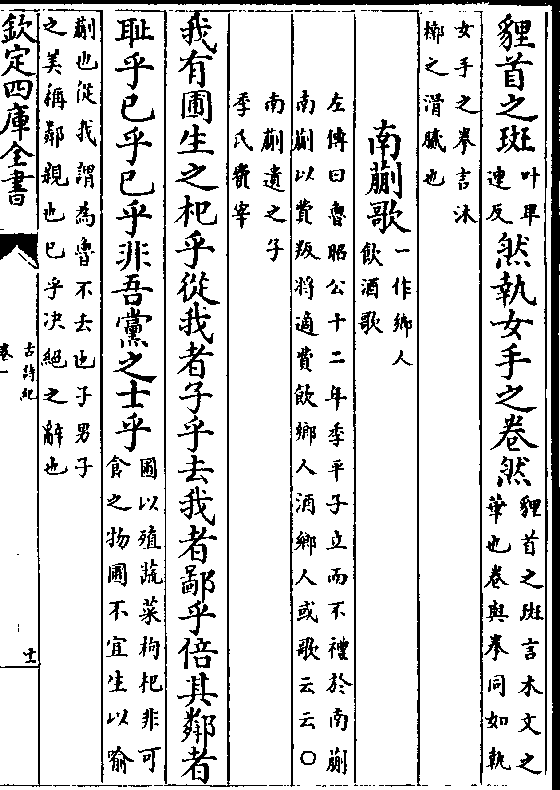 貍首之斑叶卑連反然執女手之卷然貍首之斑言木文之華也卷與拳同如執
女手之拳言沐槨之滑膩也
南蒯歌一作鄉人飲酒歌
左傳曰魯昭公十二年季平子立而不禮於南蒯
南蒯以費叛將適費飲鄉人酒鄉人或歌云云〇
南蒯遺之子
季氏費宰
我有圃生之杞乎從我者子乎去我者鄙乎倍其鄰者
恥乎已乎已乎非吾黨之士乎圃以殖蔬菜枸杞非可食之物圃不宜生以喻
蒯也從我謂為魯不去也子男子
之美稱鄰親也已乎決絕之辭也
欽定四庫全書
古詩紀
卷一
十一